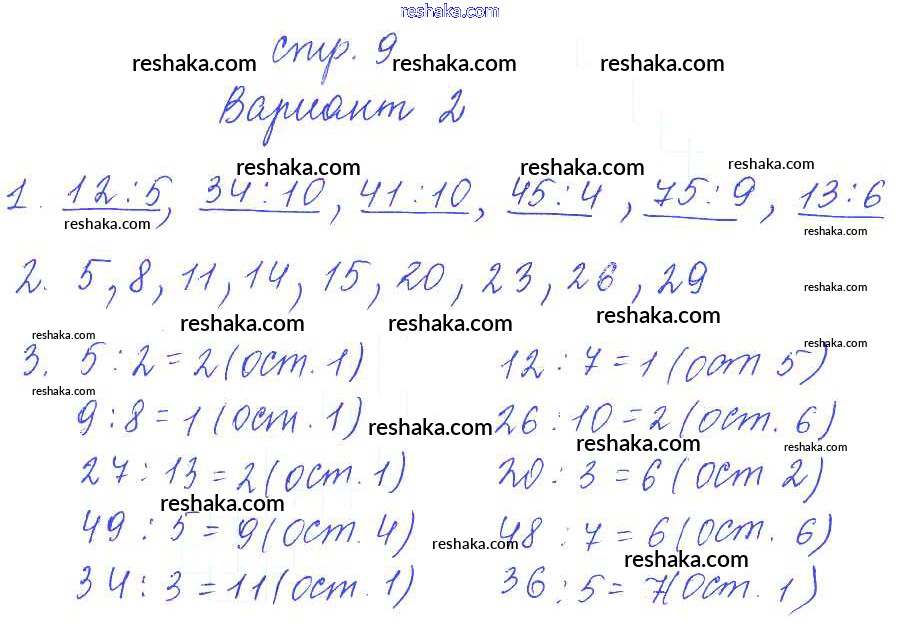 reshaka.com
стр. 9
reshaka.com reshaka.com reshaka.com
Вариант 2
reshaka.com reshaka.com reshaka.com
1. 12:5, 34:10, 41:10, 45:4, 75:9, 13:6
reshaka.com reshaka.com
2. 5, 8, 11, 14, 15, 20, 23, 26, 29
reshaka.com
reshaka.com reshaka.com reshaka.com
reshaka.com reshaka.com
3. 5:2=2(ост. 1) 12:7=1(ост 5)
reshaka.com
9:8=1(ост. 1) 26:10=2(ост. 6)
reshaka.com reshaka.com reshaka.com
27:13=2(ост. 1) 20:3=6(ост 2)
reshaka.com
49:5=9(ост. 4) 48:7=6(ост. 6)
reshaka.com reshaka.com
34:3=11(ост. 1) 36:5=7(ост. 1)